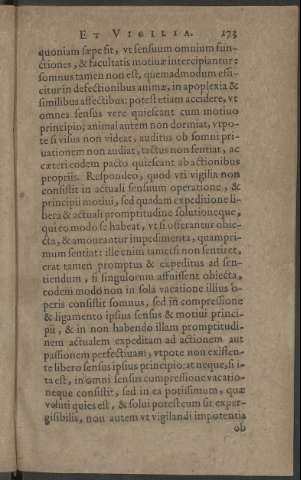 ET VIGILIA. 173
quoniam sæpe fit, vt sensuum omnium fun-
ctiones, & facultatis motiuæ intercipiantur:
somnus tamen non est, quemadmodum effi-
citur in defectionibus animæ, in apoplexia &
similibus affectibus: potest etiam accidere, vt
omnes sensus vere quiescant cum motiuo
principio; animal autem non dormiat, vtpo-
te si visus non videat, auditus ob somni pri-
uationem non audiat, tactus non sentiat, ac
cæteri eodem pacto quiescant ab actionibus
propriis. Respondeo, quod vti vigilia non
consistit in actuali sensuum operatione, &
principii motiui, sed quadam expeditione li-
bera & actuali promptitudine solutioneque,
qui eo modo se habeat, vt si offerantur obie-
cta, & amoueantur impedimenta, quampri-
mum sentiat: ille enim tametsi non sentiret,
erat tamen promptus & expeditus ad sen-
tiendum, si singulorum affuissent obiecta,
eodem modo non in sola vacatione illius o-
peris consistit somnus, sed in compressione
& ligamento ipsius sensus & motiui princi-
pii, & in non habendo illam promptitudi-
nem actualem expeditam ad actionem aut
passionem perfectiuam; vtpote non existen-
te libero sensus ipsius principio: at neque, si i-
ta est, in omni sensus compressione vacatio-
neque consistit, sed in ea potissimum, quæ
veluti quies est, & solui potest cum sit exper-
gisibilis, non autem vt vigilandi impotentia
ob